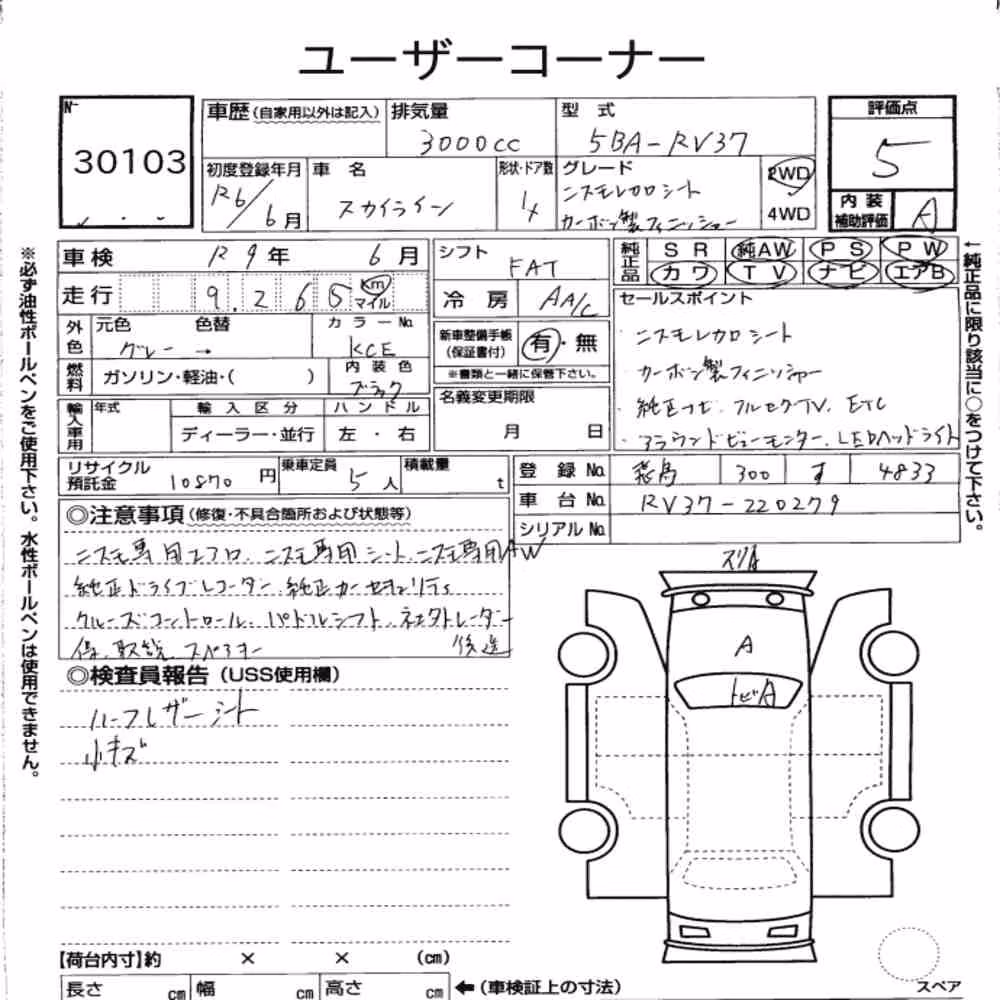 ユーザーコーナー
№
30103
車歴(自家用以外は記入) 排気量 3000cc 型式 5BA-RV37 評価点 5
初度登録年月 R6/6月 車名 スカイライン 形状・ドア数 4 グレード ニスモレカロシート カーボン製フィニッシャー 2WD 4WD
内装補助評価 A
※必ず油性ボールペンをご使用下さい。水性ボールペンは使用できません。
車検 R9年 6月 シフト FAT 純正品 SR 純AW PS PW
カワ TV ナビ エアB
走行 9.265 km マイル 冷房 AA/C
←純正品に限り該当に○をつけて下さい。
外色 元色 グレー → 色替 カラーNo. KCE
新車整備手帳(保証書付) 有・無
※書類と一緒に保管下さい。
セールスポイント
・ニスモレカロシート
・カーボン製フィニッシャー
・純正ナビ.フルセグTV.ETC
・アラウンドビューモニター.LEDヘッドライト
燃料 ガソリン・軽油・( ) 内装色 ブラック
名義変更期限 月 日
輸入車用 年式 輸入区分 ハンドル
ディーラー・並行 左・右
リサイクル預託金 10870円 乗車定員 5人 積載量 t
登録No. 300 す 4833
車台No. RV37-220279
シリアルNo.
◎注意事項(修復・不具合箇所および状態等)
ニスモ専用エアロ.ニスモ専用シート.ニスモ専用AW
純正ドライブレコーダー.純正カーセキュリティ
クルーズコントロール.パドルシフト.ネオトレーダー
保.取説.スペアキー 後送
◎検査員報告(USS使用欄)
ハーフレザーシート
小キズ
スリA
A
トビA
【荷台内寸】約 × × (cm)
長さ cm 幅 cm 高さ cm ←(車検証上の寸法)
スペア